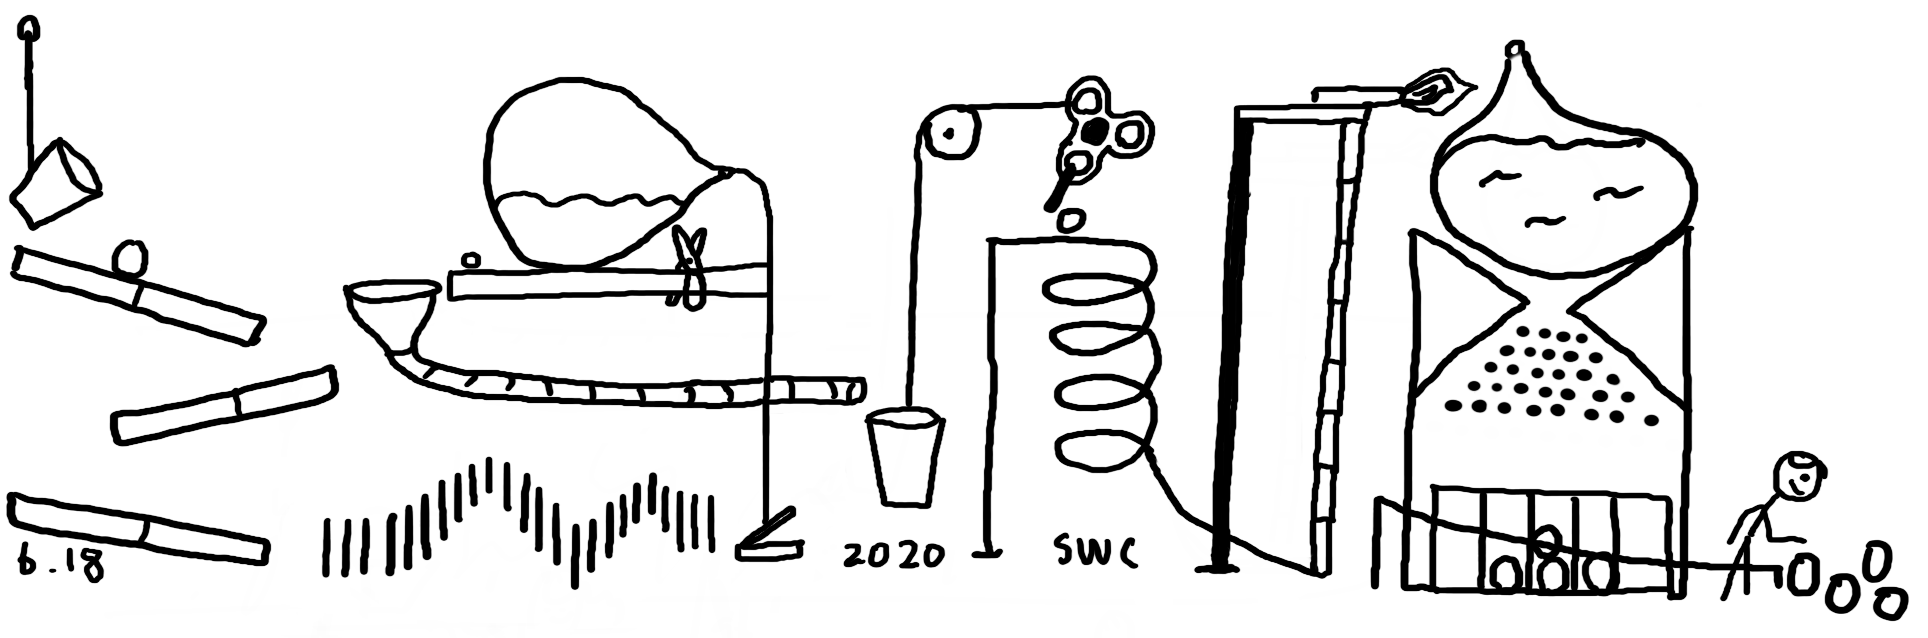 6.18
2020
SWC